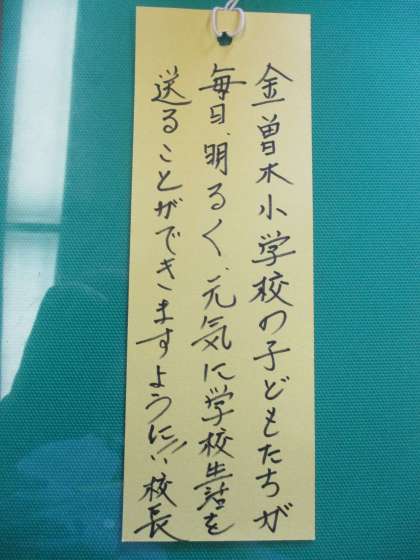 金曽木小学校の子どもたちが
毎日、明るく、元気に学校生活を
送ることができますように!! 校長